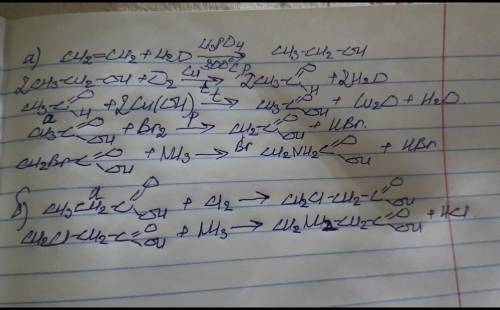 а) CH2=CH2 + H2O H3PO4 300°C, P → CH3-CH2-OH
2CH3-CH2-OH + O2 Cu t → 2CH3-C O H + 2H2O
CH3-C O H + 2Cu(OH) t → CH3-C O OH + Cu2O + H2O
CH3-C O OH + Br2 P → CH2-C O OH + HBr.
Br
CH2Br-C O OH + NH3 → CH2NH2-C O OH + HBr
б) CH3CH2-C O OH + Cl2 → CH2Cl-CH2-C O OH
CH2Cl-CH2-C O OH + NH3 → CH2NH2-CH2-C O OH + HCl